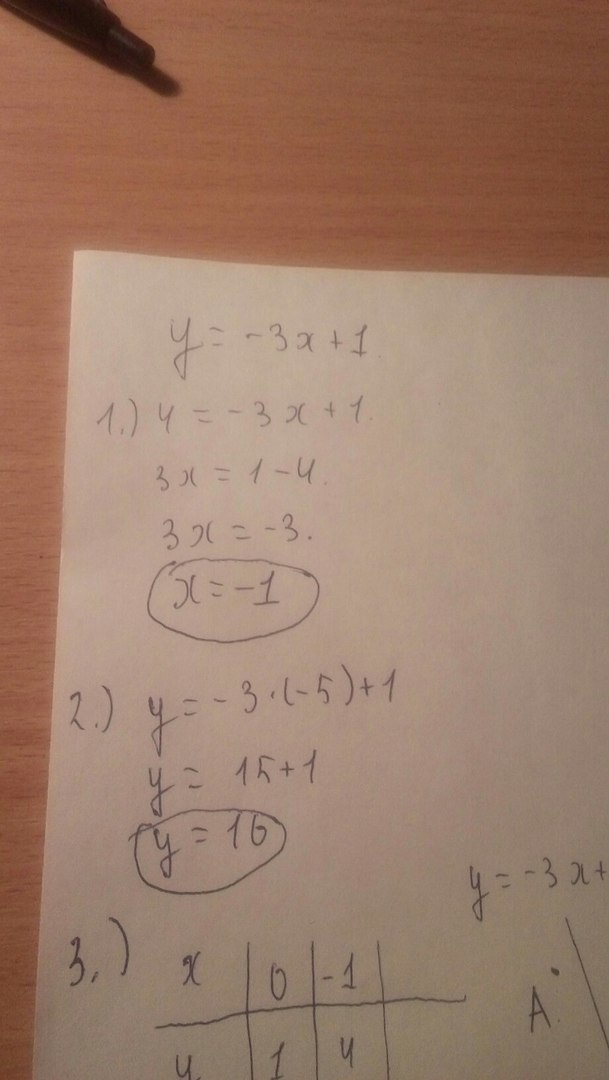 y = -3x + 1
1.) 4 = -3x + 1.
3x = 1 - 4.
3x = -3.
x = -1
2.) y = -3·(-5)+1
y = 15+1
y = 16
y = -3x+
3.) x | 0 | -1 |
A.
y | 1 | 4